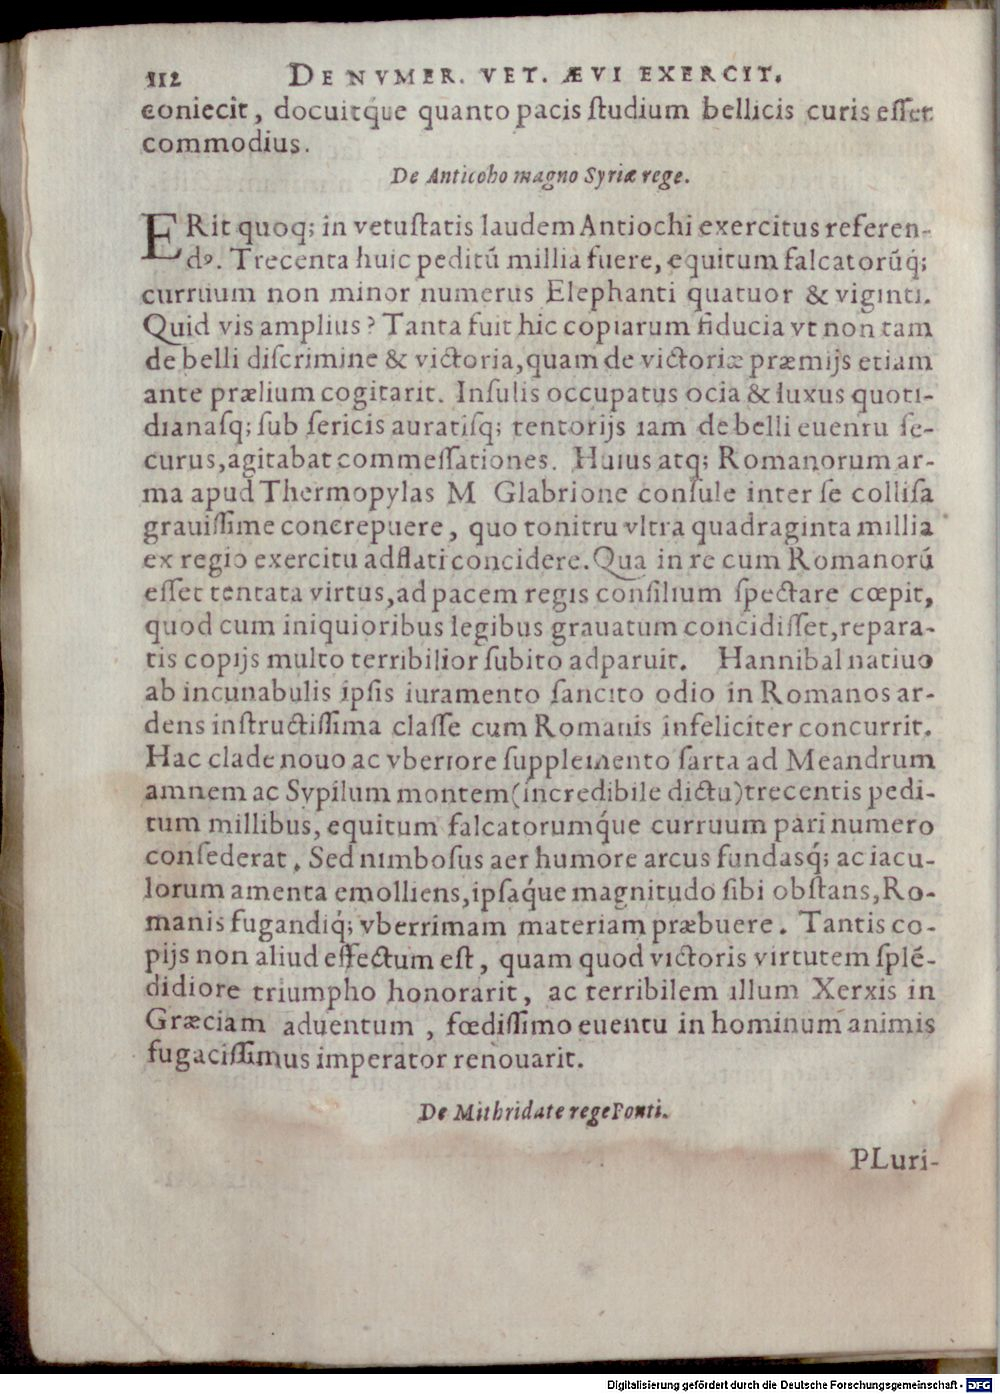 112 DE NVMER. VET. ÆVI EXERCIT.
coniecit, docuitq́ue quanto pacis ſtudium bellicis curis eſſet
commodius.
De Anticoho magno Syriæ rege.
ERit quoq; in vetuſtatis laudem Antiochi exercitus referen-
dꝰ. Trecenta huic peditū millia fuere, equitum falcatorūq́;
curruum non minor numerus Elephanti quatuor & viginti.
Quid vis amplius? Tanta fuit hic copiarum fiducia vt non tam
de belli diſcrimine & victoria, quam de victoriæ præmijs etiam
ante prælium cogitarit. Inſulis occupatus ocia & luxus quoti-
dianaſq; ſub ſericis auratiſq; tentorijs iam de belli euentu ſe-
curus, agitabat commeſſationes. Huius atq; Romanorum ar-
ma apud Thermopylas M Glabrione conſule inter ſe colliſa
grauiſſime concrepuere, quo tonitru vltra quadraginta millia
ex regio exercitu adflati concidere. Qua in re cum Romanorū
eſſet tentata virtus, ad pacem regis conſilium ſpectare cœpit,
quod cum iniquioribus legibus grauatum concidiſſet, repara-
tis copijs multo terribilior ſubito adparuit. Hannibal natiuo
ab incunabulis ipſis iuramento ſancito odio in Romanos ar-
dens inſtructiſſima claſſe cum Romanis infeliciter concurrit.
Hac clade nouo ac vberiore ſupplemento ſarta ad Meandrum
amnem ac Sypilum montem (incredibile dictu) trecentis pedi-
tum millibus, equitum falcatorumq́ue curruum pari numero
conſederat. Sed nimboſus aer humore arcus fundasq́; ac iacu-
lorum amenta emolliens, ipſaq́ue magnitudo ſibi obſtans, Ro-
manis fugandiq́; vberrimam materiam præbuere. Tantis co-
pijs non aliud effectum eſt, quam quod victoris virtutem ſplē-
didiore triumpho honorarit, ac terribilem illum Xerxis in
Græciam aduentum, fœdiſſimo euentu in hominum animis
fugaciſſimus imperator renouarit.
De Mithridate rege Ponti.
PLuri-
Digitalisierung gefördert durch die Deutsche Forschungsgemeinschaft - DFG